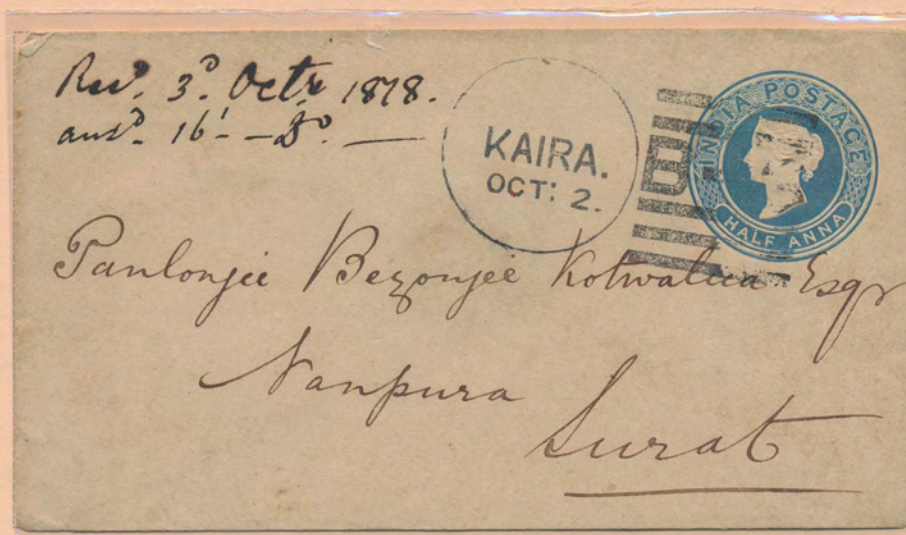 Recd. 3d. Octr 1878.
ansd. 16' — Do. —
KAIRA.
OCT: 2.
B
INDIA POSTAGE
HALF ANNA
Panlonjee Bezonjee Kotwalla Esqr
Nanpura
Surat